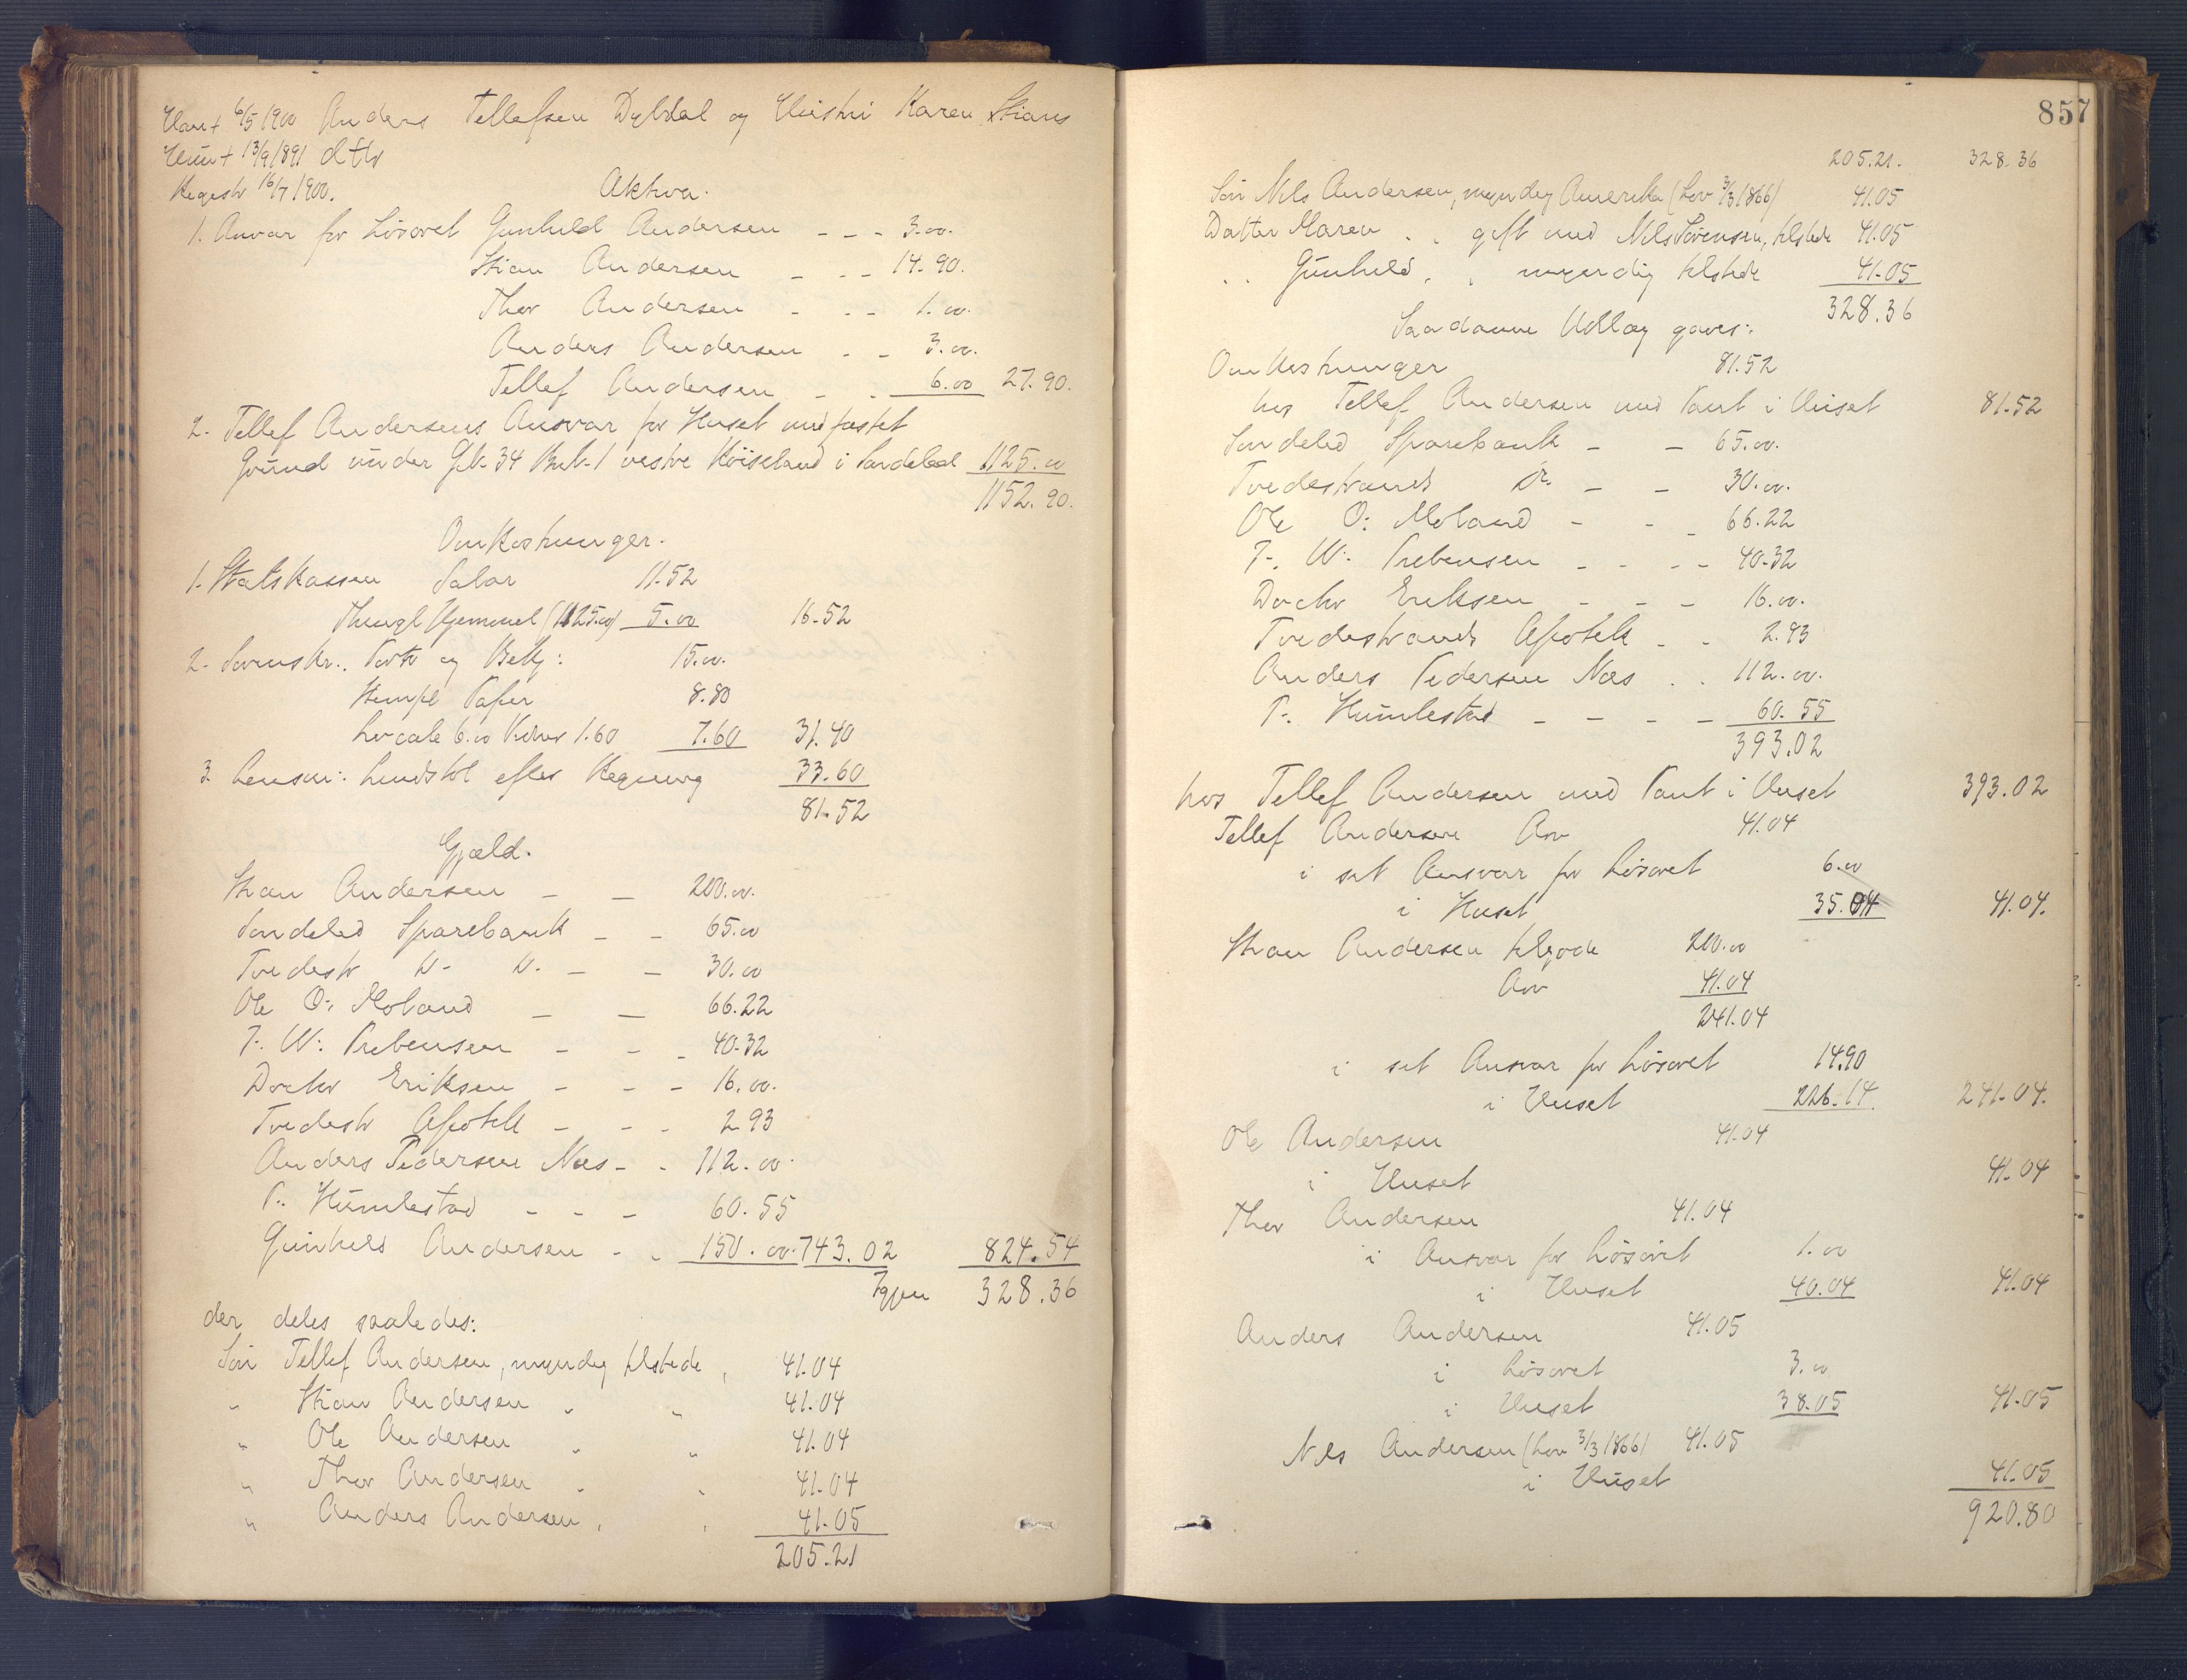 Han + 6/5 1900 Anders Tellefsen Dybdal og Hustru Karen Stians
Hun + 13/9 1891 dtter
Registr 16/7 1900.
Aktiva.
1. Ansvar for Løsøret Gunhild Andersen - - - 3.00.
Stian Andersen - - - 14.90.
Thor Andersen - - - 1.00.
Anders Andersen - - 3.00.
Tellef Andersen - - 6.00 27.90.
2. Tellef Andersens Ansvar for Huset med fæstet
Grund under Gb. 34 Bb. 1 vestre Röiseland i Søndeled 1125.00
1152.90.
Omkostninger.
1. Statskassen Salær 11.52
Thingl Hjemmel (1125.00) 5.00 16.52
2. Sorenskr.. Porto og Bekj: 15.00.
Stempl Papir 8.80
Locale 6.00 Vidner 1.60 7.60 31.40
3. Lensm: Lundstøl efter Regning 33.60
81.52
Gjæld.
Stian Andersen - - 200.00.
Søndeled Sparebank - - 65.00
Tvedestr D. D. - - 30.00
Ole O: Moland - - 66.22
F. W: Prebensen - - - 40.32
Doctor Eriksen - - - 16.00.
Tvedestr Apothek - - - 2.93
Anders Pedersen Næs - - 112.00.
P. Humlestad - - - 60.55
Gunhild Andersen - - 150.00. 743.02 824.54
Igjen 328.36
der deles saaledes:
Søn Tellef Andersen, myndig tilstede, 41.04
" Stian Andersen " " 41.04
" Ole Andersen " " 41.04
" Thor Andersen " " 41.04
" Anders Andersen " " 41.05
205.21
857
205.21. 328.36
Søn Nils Andersen, myndig Amerika (Lov 3/3 1866) 41.05
Datter Maren . . gift med Nils Sörensen, tilstede 41.05
. . Gunhild . . myndig tilstede 41.05
328.36
Saadanne Udlæg gaves:
Omkostninger 81.52
hos Tellef Andersen med Pant i Huset 81.52
Søndeled Sparebank - - 65.00.
Tvedestrands Do. - - 30.00.
Ole O: Moland - - - 66.22
F. W. Prebensen - - - - 40.32
Doctor Eriksen - - - 16.00.
Tvedestrands Apothek - - 2.93
Anders Pedersen Næs . . 112.00.
P. Humlestad - - - - 60.55
393.02
hos Tellef Andersen med Pant i Huset 393.02
Tellef Andersen Arv 41.04
i sit Ansvar for Løsøret 6.00
i Huset 35.04 41.04.
Stian Andersen tilgode 200.00
Arv 41.04
241.04
i sit Ansvar for Løsøret 14.90
i Huset 226.14. 241.04.
Ole Andersen 41.04
i Huset 41.04
Thor Andersen 41.04
i Ansvar for Løsøret 1.00
i Huset 40.04 41.04
Anders Andersen 41.05
i Løsøret 3.00
i Huset 38.05 41.05
Nils Andersen (Lov 3/3 1866) 41.05
i Huset 41.05
920.80